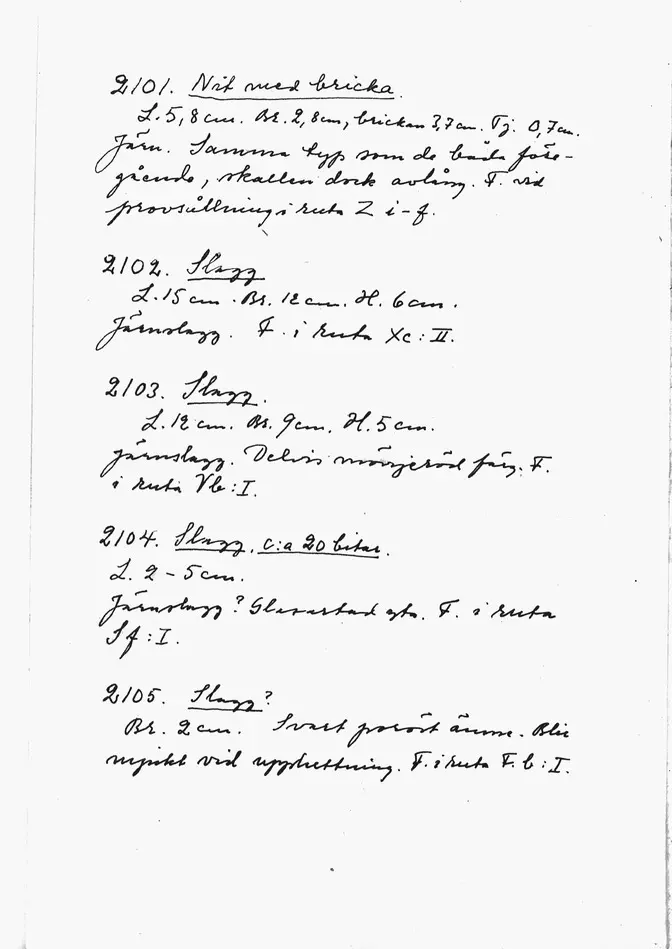 2101. Nit med bricka.
L. 5,8 cm. Br. 2,8 cm, brickan 3,7 cm. Tj. 0,7 cm.
Järn. Samma typ som de båda före-
gående, skallen dock avlång. F. vid
provsållning i ruta Z i-f.
2102. Slagg
L. 15 cm. Br. 12 cm. H. 6 cm.
Järnslagg. F. i ruta Xc: II.
2103. Slagg.
L. 12 cm. Br. 9 cm. H. 5 cm.
Järnslagg. Delvis mönjeröd färg. F.
i ruta Vb: I.
2104. Slagg, c:a 20 bitar.
L. 2-5 cm.
Järnslagg? Glasartad yta. F. i ruta
Sf: I.
2105. Slagg?
Br. 2 cm. Svart poröst ämne. Blir
mjukt vid upphettning. F. i ruta F. b: I.